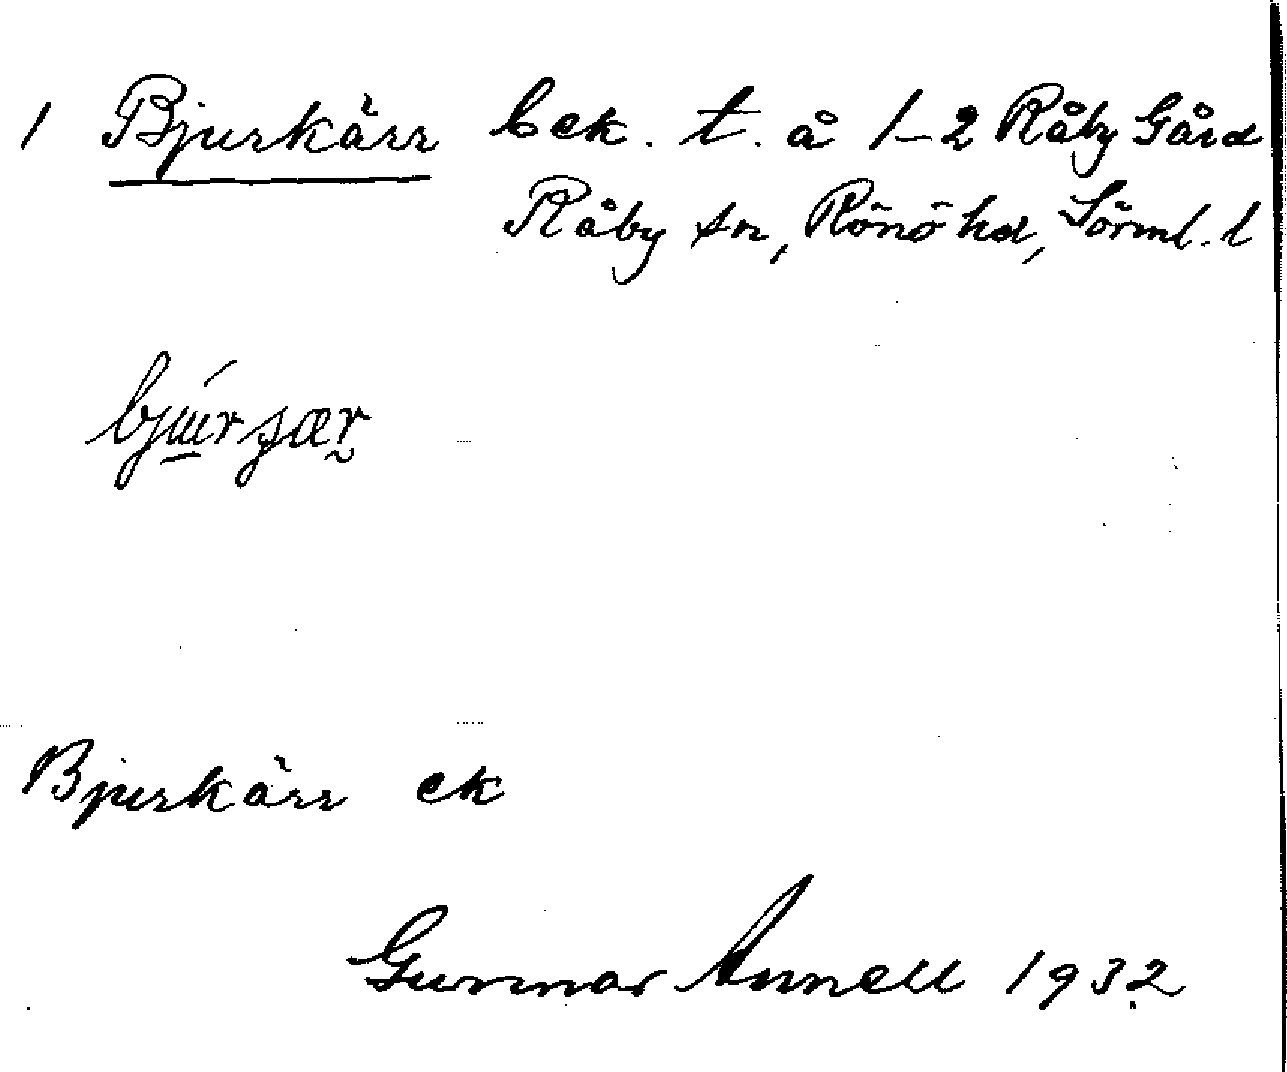 1 Bjurkärr bek. t. å 1-2 Råby Gård
Råby sn, Rönö hd, Sörml. l
Bjurkärr ek
Gunnar Annell 1932